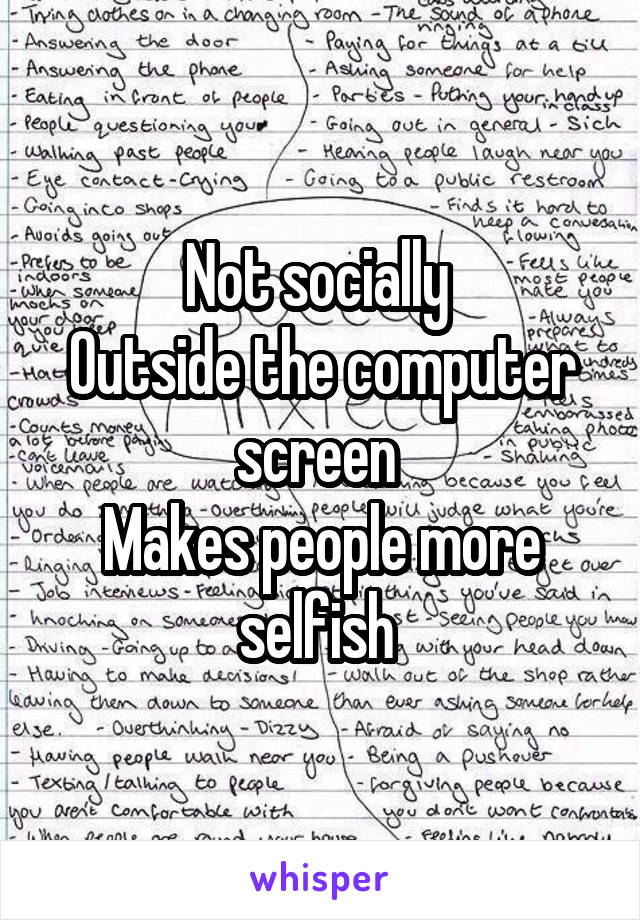 - Trying clothes on in a changing room - The sound of a phone
ringing
- Answering the door - Paying for things at a till
- Answering the phone - Asking someone for help
- Eating in front of people - Parties - Putting your hand up
in class
- People questioning you - Going out in general - Sick
- Walking past people - Hearing people laugh near you
- Eye contact - Crying - Going to a public restroom
- Going into shops - Finds it hard to
keep a conversation
- Avoids going out flowing
Not socially
- Prefers to be - Feels like
indoors most people
- When someone hate you
knocks on
your door - Always
you keep prepares
quiet what to
Outside the computer
- Hat hundreds
crowds
- Counts money embarassed
a lot before paying taking photo
in public
screen
- Can't leave - Shaking
voicemails
- When people are because you feel
you do - Overthinking people will judge what you're
Makes people more
- Ordering
Ringing get over
- Job interviews - Feeling things you've said in
knocking on someone - Seeing people you know
selfish
- Driving - Going up to with your head down
- Having to make decisions! - Walk out of the shop rather
leaving them down to someone than ever asking someone for help
else. - Overthinking - Dizzy - Afraid of saying no
- Having people walk near you - Being a pushover
- Texting / talking to people - forgiving people because
you aren't comfortable with you don't want confrontation
- When people are round your house - Feeling like nobody
whisper